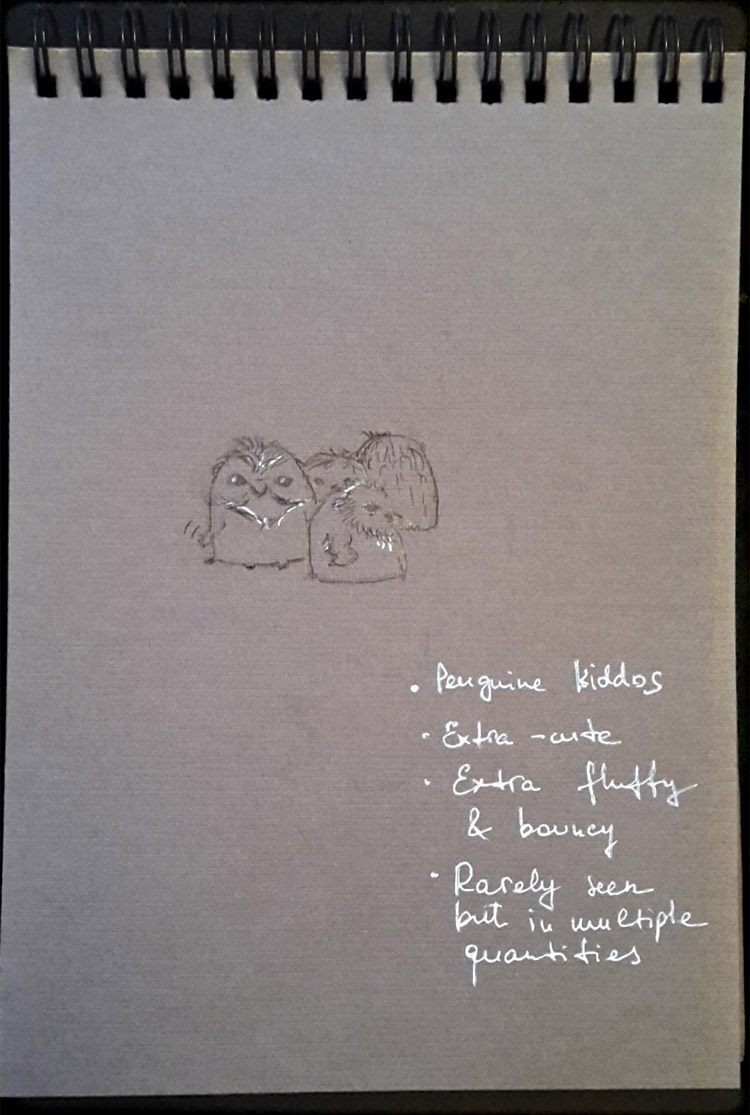 • Penguine kiddos
• Extra-cute
• Extra fluffy
& bouncy
• Rarely seen
but in multiple
quantities